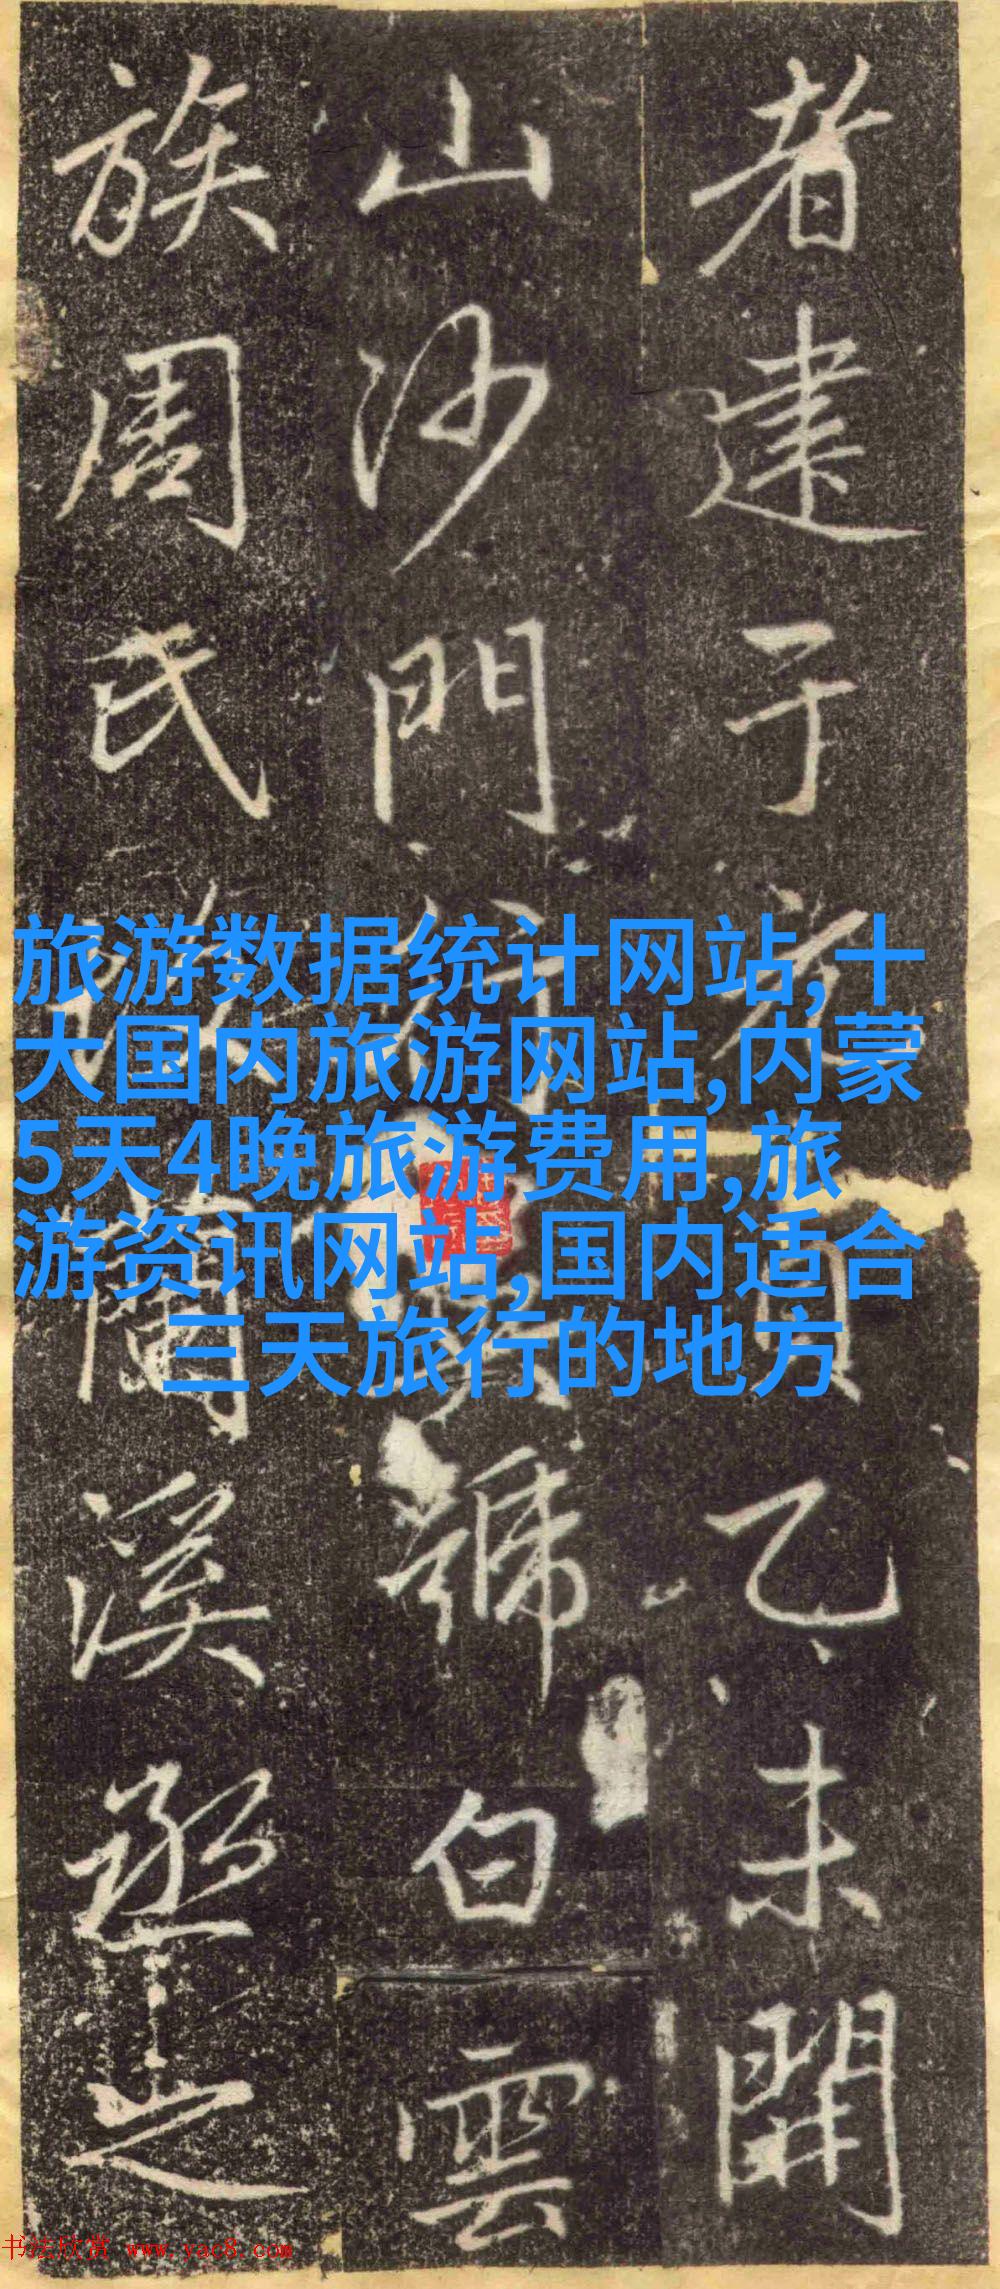 者建于
乙未開
山沙門
號白雲
族周氏
蘭溪丞之
旅游数据统计网站,十
大国内旅游网站,内蒙
5天4晚旅游费用,旅
游资讯网站,国内适合
三天旅行的地方
书法欣赏 www.yac8.com